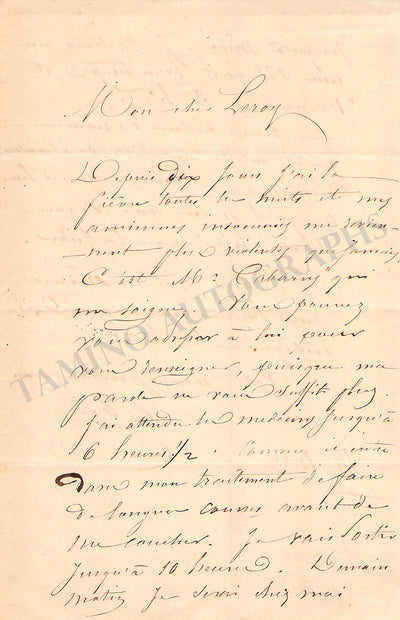 Mon cher Leroy
Depuis dix jours j'ai la
fièvre toutes les nuits et mes
anciennes insomnies me revien-
nent plus violentes que jamais.
C'est Mr Cabarrus qui
me soigne. Vous pouvez
vous adresser à lui pour
vous renseigner, puisque ma
parole ne vous suffit plus.
J'ai attendu le medecin jusqu'à
6 heures 1/2. Comme il entre
dans mon traitement de faire
de longues courses avant de
me coucher. Je vais sortir
jusqu'à 10 heures. Demain
matin je serai chez moi
TAMINO AUTOGRAPHS